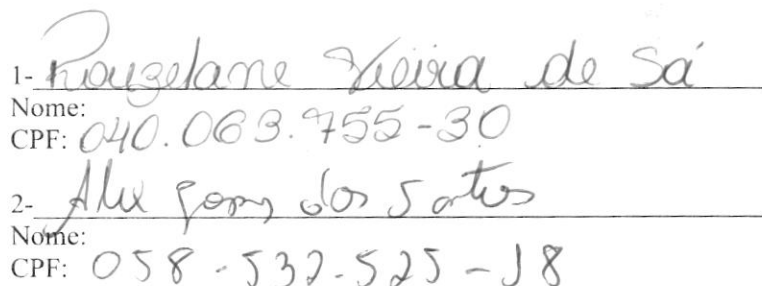 1- Rouzelane Vieira de Sá
Nome:
CPF: 040.063.755-30
2- Alex Gomes dos Santos
Nome:
CPF: 058-532-525-18